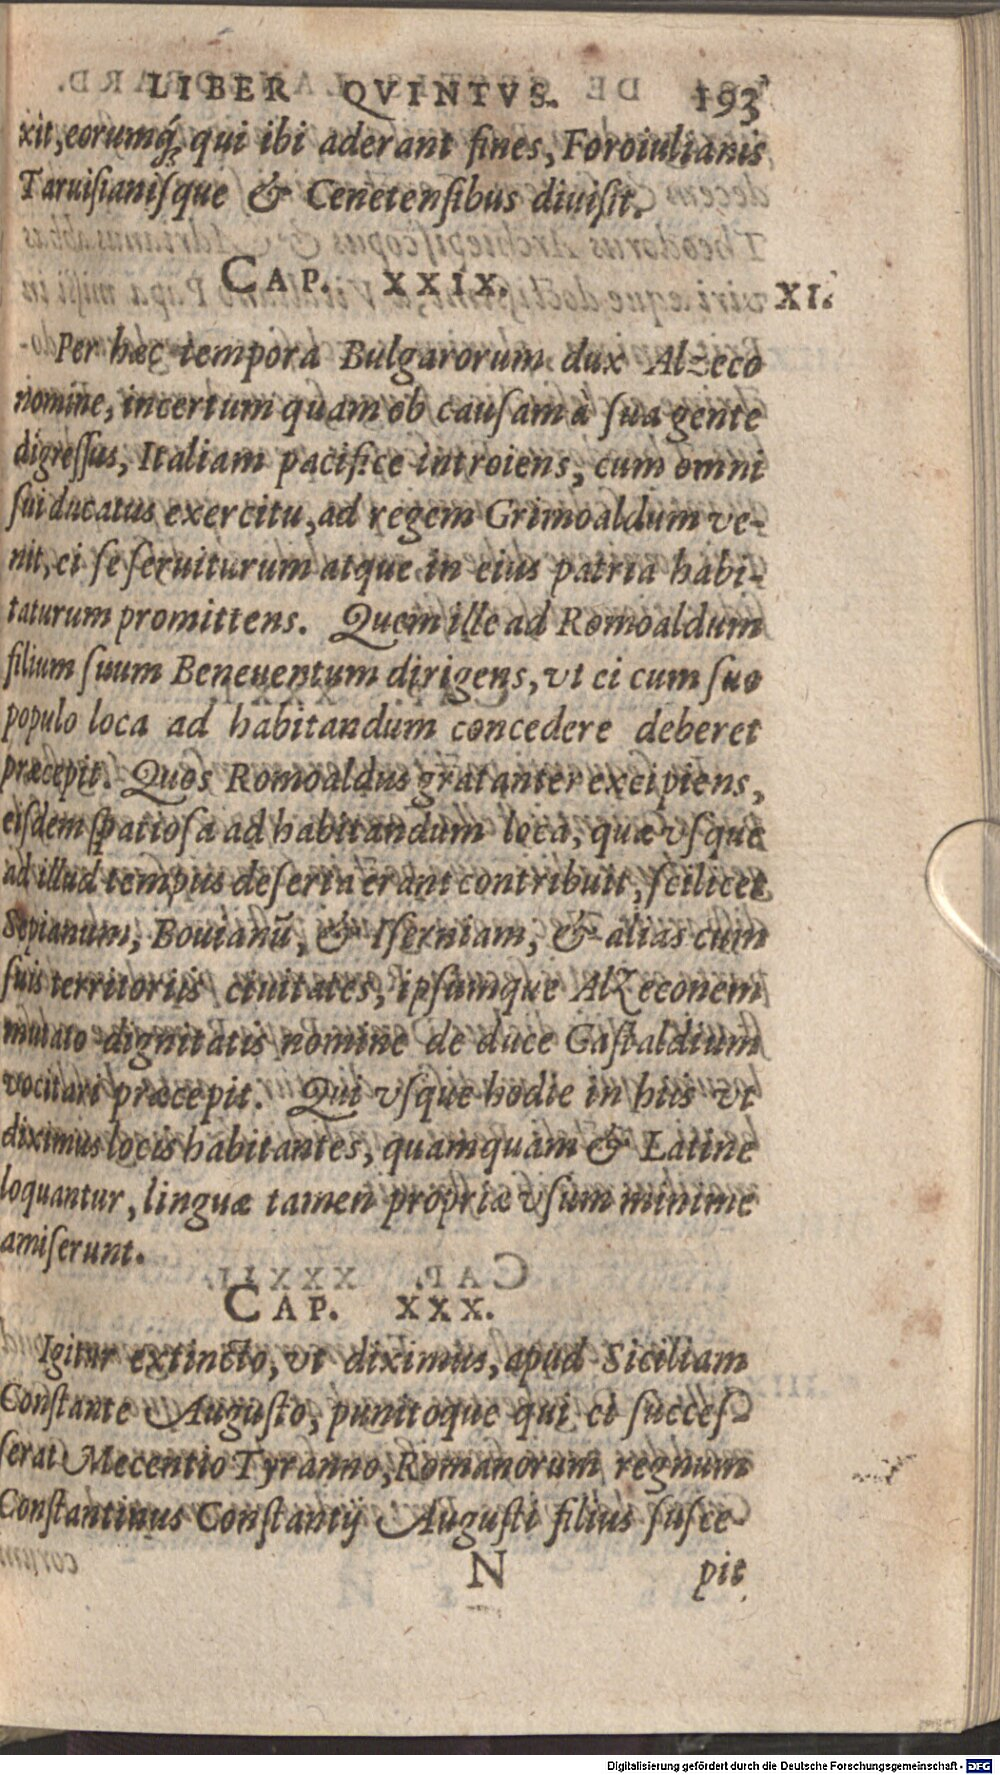 LIBER QVINTVS. 193
xit, eorumq́; qui ibi aderant fines, Foroiulianis
Taruisianisque & Cenetensibus diuisit.
CAP. XXIX.
XI.
Per hæc tempora Bulgarorum dux Alzeco
nomine, incertum quam ob causam a sua gente
digressus, Italiam pacifice introiens, cum omni
sui ducatus exercitu, ad regem Grimoaldum ve-
nit, ei se seruiturum atque in eius patria habi-
taturum promittens. Quem ille ad Romoaldum
filium suum Beneuentum dirigens, vt ei cum suo
populo loca ad habitandum concedere deberet
præcepit. Quos Romoaldus gratanter excipiens,
eisdem spatiosa ad habitandum loca, quæ vsque
ad illud tempus deserta erant contribuit, scilicet
Sepianum, Bouianū, & Iserniam, & alias cum
suis territoriis ciuitates, ipsumque Alzeconem
mutato dignitatis nomine de duce Gastaldium
vocitari præcepit. Qui vsque hodie in hiis vt
diximus locis habitantes, quamquam & Latine
loquantur, linguæ tamen propriæ vsum minime
amiserunt.
CAP. XXX.
Igitur extincto, vt diximus, apud Siciliam
Constante Augusto, punitoque qui ei succes-
serat Mecentio Tyranno, Romanorum regnum
Constantinus Constantij Augusti filius susce-
N pit
Digitalisierung gefördert durch die Deutsche Forschungsgemeinschaft - DFG